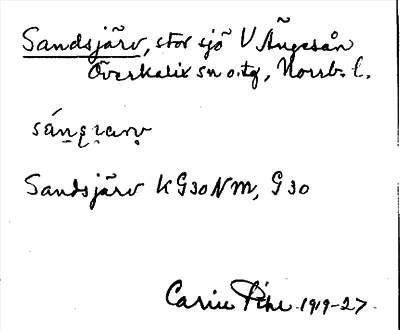 Sandsjärv, stor sjö V Ängesån
Överkalix sn o. tg, Norrb. l.
Sandsjärv K G30 NM, G 30
Carin Pihl 1919-27.